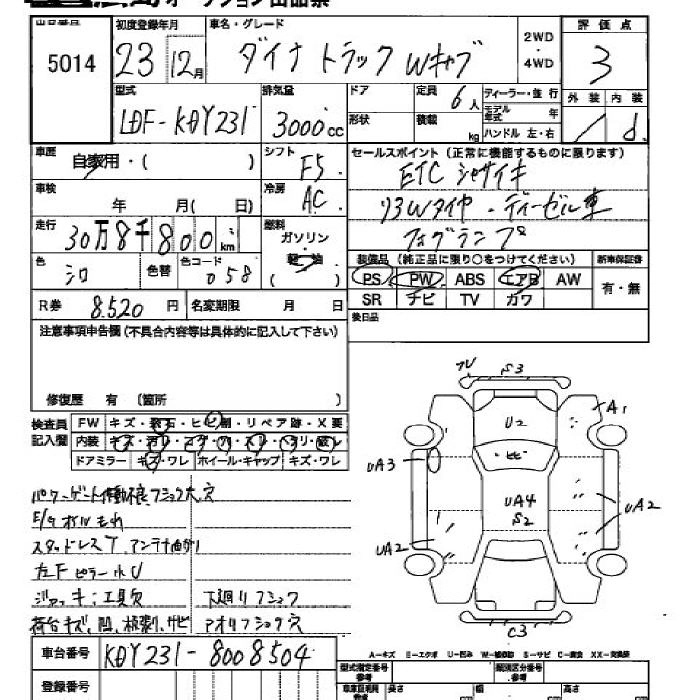 オークション出品票
出品番号 初度登録年月 車名・グレード 評価点
5014 23 12月 ダイナ トラック Wキャブ 2WD・4WD 3
型式 排気量 ドア 定員 6人 ディーラー・並行 外装 内装
LDF-KDY231 3000cc 形状 積載 kg モデル年式 年 d
ハンドル 左・右
車歴 自家用・( ) シフト F5 セールスポイント(正常に機能するものに限ります)
車検 年 月( 日) 冷房 AC ETC シャサイキ
走行 30万8千800km 燃料 ガソリン・軽油 リヌWタイヤ・ディーゼル車
フォグランプ
色 シロ 色替 色コード 058 ( ) 装備品(純正品に限り○をつけてください) 新車保証書
PS PW ABS エアB AW 有・無
SR ナビ TV カワ
R券 8,520円 名変期限 月 日 後日品
注意事項申告欄(不具合内容等は具体的に記入して下さい)
修復歴 有 (箇所 )
検査員記入欄 FW キズ・飛石・ヒビ割・リペア跡・X要
内装 キズ・汚レ・コゲ・穴・スレ・ヘタリ・破レ
ドアミラー キズ・ワレ ホイール・キャップ キズ・ワレ
パワーゲート作動不良、フショク大、穴
E/gオイルもれ
スタッドレスT、アンテナ曲がり
左Fピラー小U
ジャッキ、工具欠 下廻りフショク
荷台キズ、凹、板割、サビ アオリフショク穴
フレ S3
U2 A1
ヒビ
UA3 UA4 S2 UA2
UA2
C3
A-キズ E-エクボ U-凹み W-補修跡 S-サビ C-腐食 XX-交換済
車台番号 KDY231-8008504
型式指定番号 類別区分番号
登録番号 車庫証明用 長さ 幅 高さ